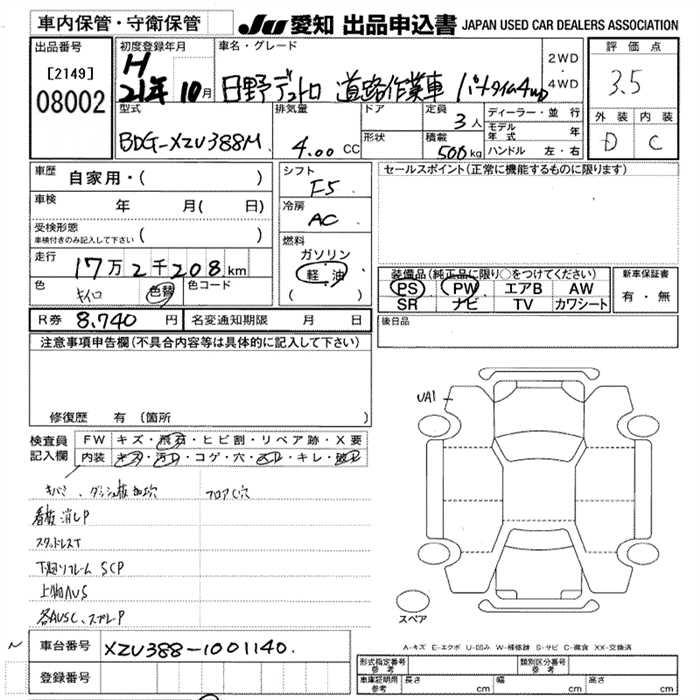 車内保管・守衛保管
JU 愛知 出品申込書 JAPAN USED CAR DEALERS ASSOCIATION
出品番号
[2149]
08002
初度登録年月
H
21年 10月
車名・グレード
日野デュトロ 道路作業車 パートタイム4WD
2WD
・
4WD
評価点
3.5
外装 内装
D C
型式
BDG-XZU388M
排気量
4.00 CC
ドア
形状
定員
3人
積載
500kg
ディーラー・並行
モデル年式 年
ハンドル 左・右
車歴
自家用・( )
車検
年 月( 日)
受検形態
車検付きのみ記入して下さい ( )
走行
17万2千208km
色
キイロ
色替
色コード
シフト
F5
冷房
AC
燃料
ガソリン
軽油
( )
セールスポイント(正常に機能するものに限ります)
装備品(純正品に限り○をつけてください)
PS PW エアB AW
SR ナビ TV カワシート
新車保証書
有・無
R券 8,740円
名変通知期限 月 日
後日品
注意事項申告欄(不具合内容等は具体的に記入して下さい)
修復歴 有 (箇所 )
検査員
記入欄
FW キズ・飛石・ヒビ割・リペア跡・X要
内装 キズ・汚れ・コゲ・穴・スレ・キレ・破れ
キバミ、ダッシュ板加工穴
フロアC穴
看板消しP
スタッドレスT
下廻りフレームSCP
上物AUS
各AUSC、スプレP
UA1
スペア
A-キズ E-エクボ U-凹み W-補修跡 S-サビ C-腐食 XX-交換済
車台番号 XZU388-1001140.
登録番号
形式指定番号
参考
類別区分番号
参考
車庫証明用
参考
長さ cm
幅 cm
高さ cm